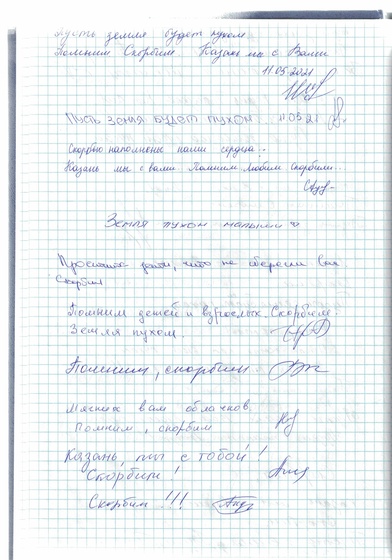 Пусть земля будет пухом
Помним Скорбим Казань мы с Вами
11.05.2021
ПУСТЬ ЗЕМЛЯ БУДЕТ ПУХОМ 11.05.21
Скорбью наполнены наши сердца..
Казань мы с вами. Помним Любим Скорбим..
Земля пухом малыши
дети, что не сберегли вас
Скорбим
Помним детей и взрослых. Скорбим.
Земля пухом.
Помним, скорбим.
Мягких вам облачков.
Помним, скорбим
Казань, мы с тобой!
Скорбим!
Скорбим!!!